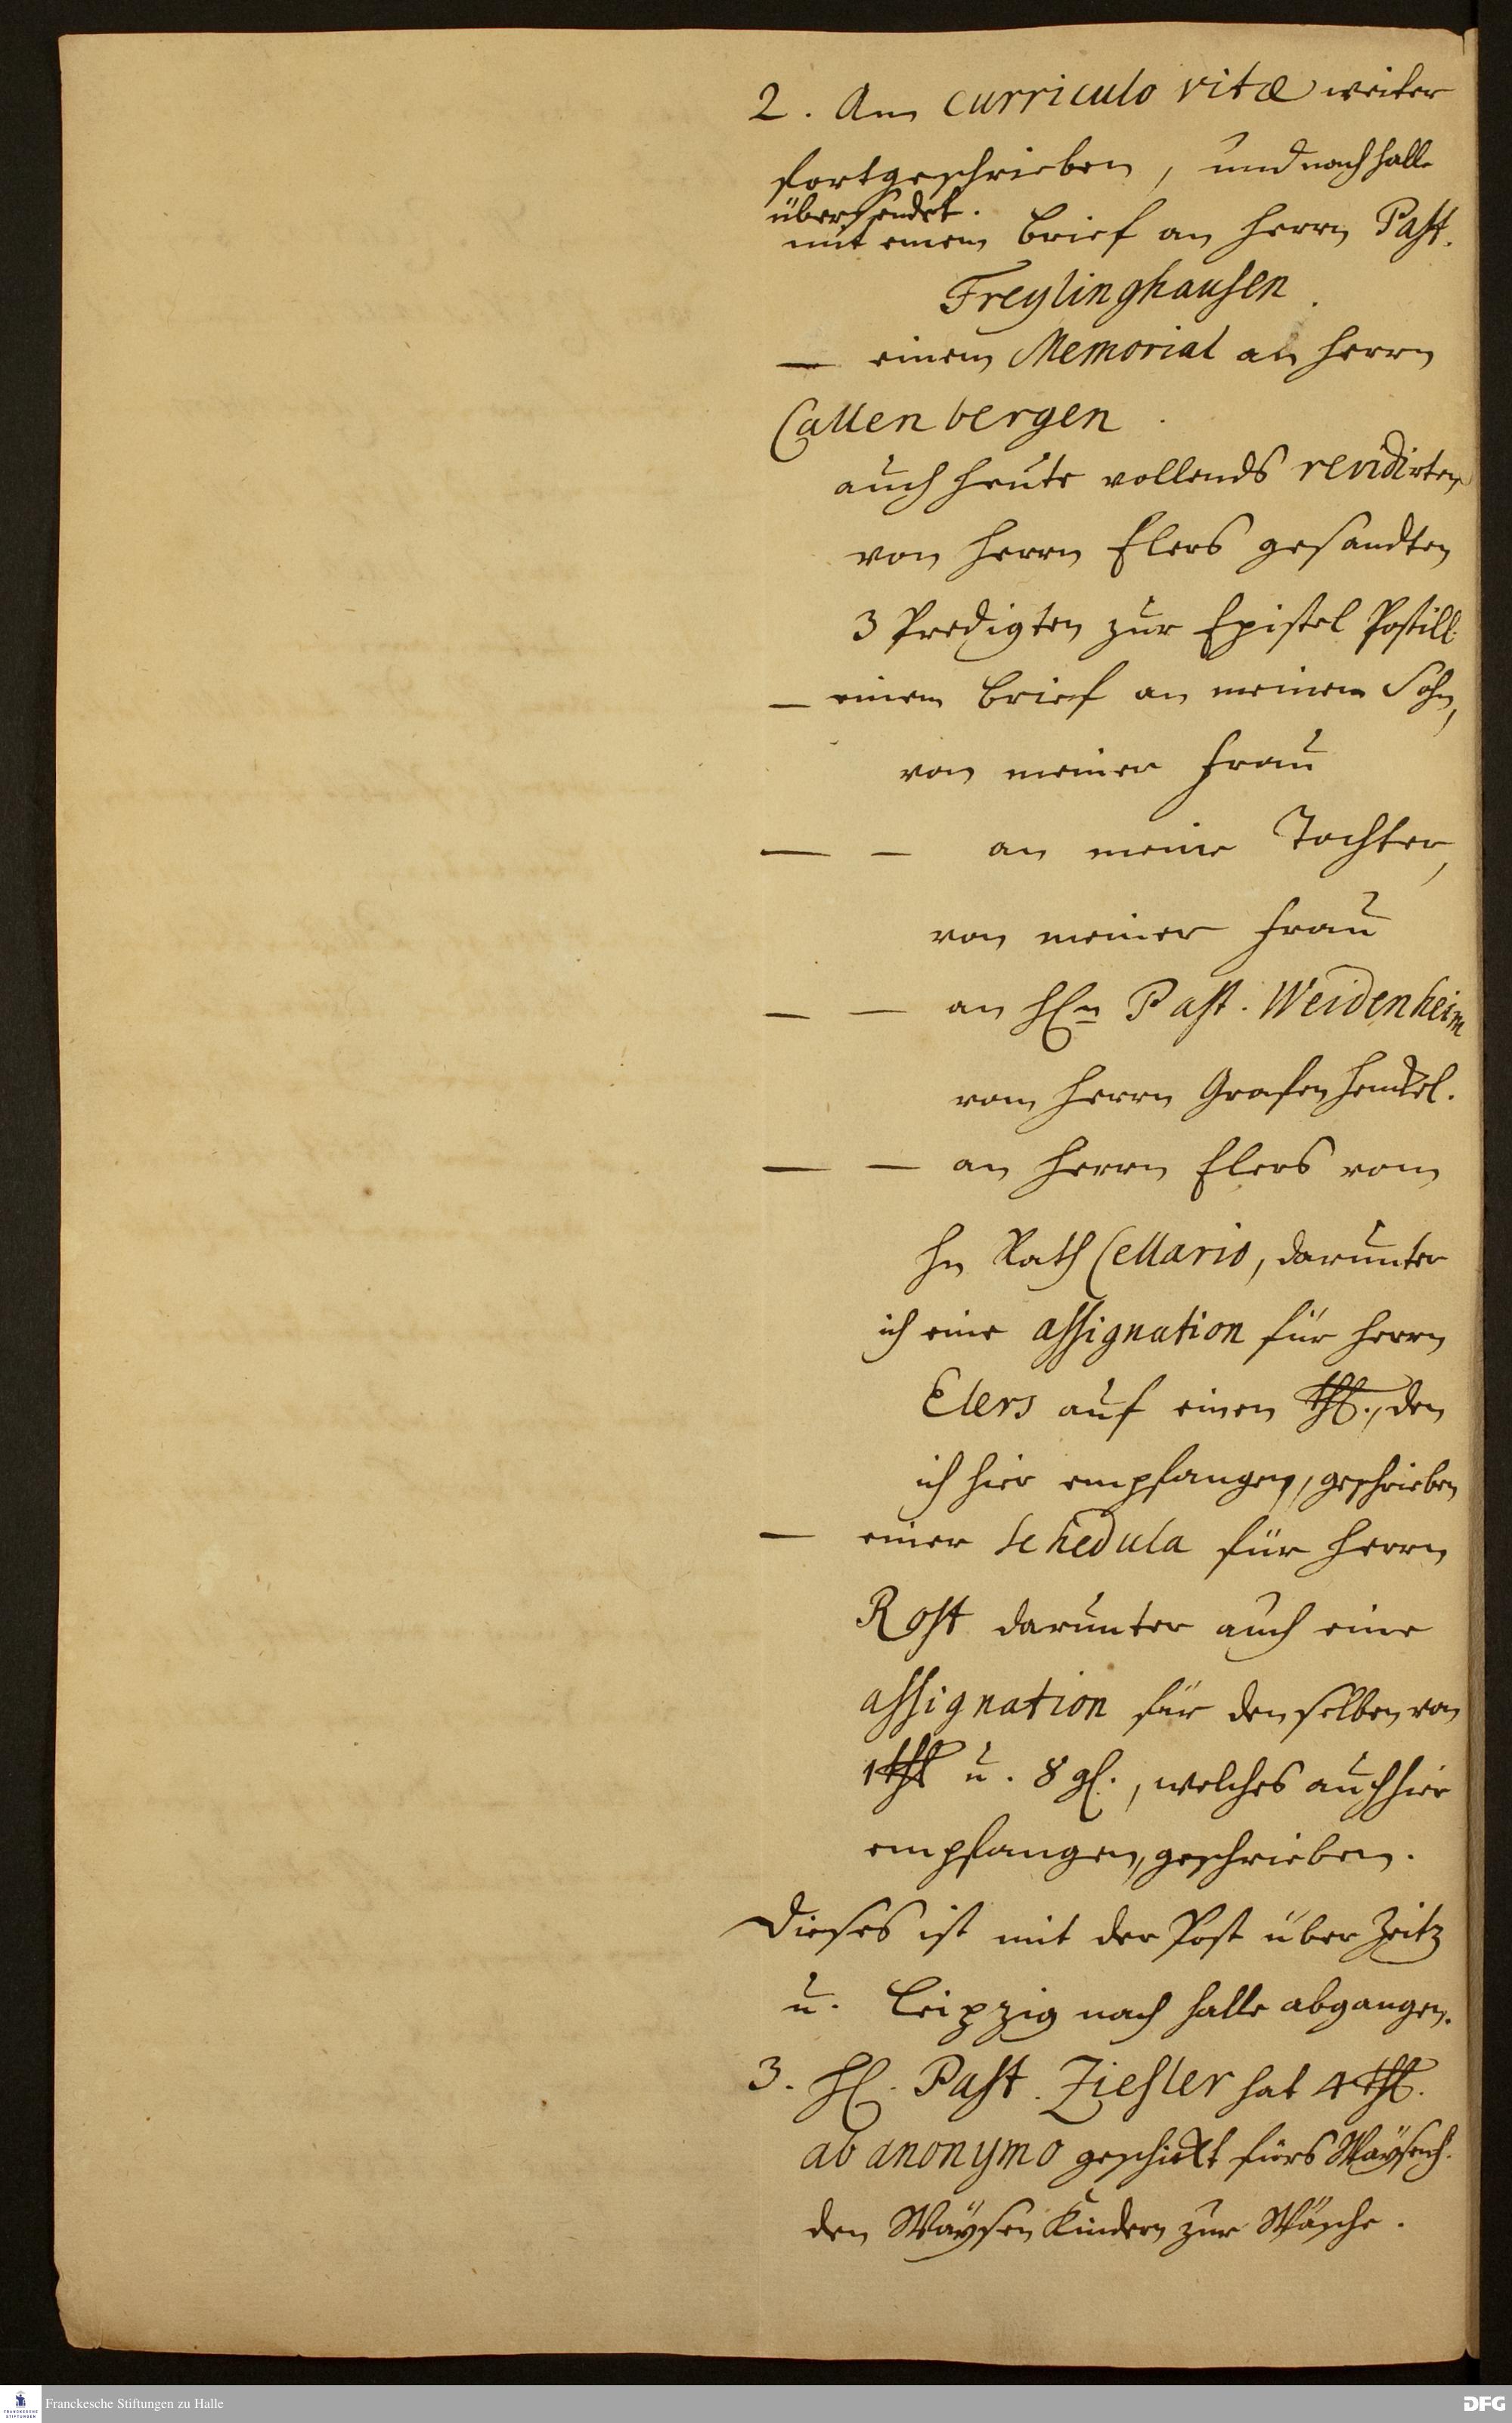 2. Am curriculo vitæ weiter
fortgeschrieben, und nach Halle
übersendet.
mit einem Brief an Herrn Past.
Freylinghausen.
— einem Memorial an Herrn
Callenbergen.
auch heute vollends revidirten
von Herrn Elers gesandten
3 Predigten zur Epistel Postill
— einem Brief an meinen Sohn,
von meiner Frau
— — an meine Tochter,
von meiner Frau
— — an HEn Past. Weidenheim
vom Herrn Grafen Henckel.
— — an Herrn Elers vom
Hn Rath Cellario, darunter
ich eine assignation für Herrn
Elers auf einen thl., den
ich hier empfangen, geschrieben
— einer schedula für Herrn
Rost darunter auch eine
assignation für denselben von
1 thl u. 8 gl., welches auch hier
empfangen, geschrieben.
Dieses ist mit der Post über Zeitz
u. Leipzig nach Halle abgangen.
3. HE. Past. Ziesler hat 4 thl.
ab anonymo geschickt fürs Waysenh.
den Waysen Kindern zur Wäsche.
Franckesche Stiftungen zu Halle
DFG